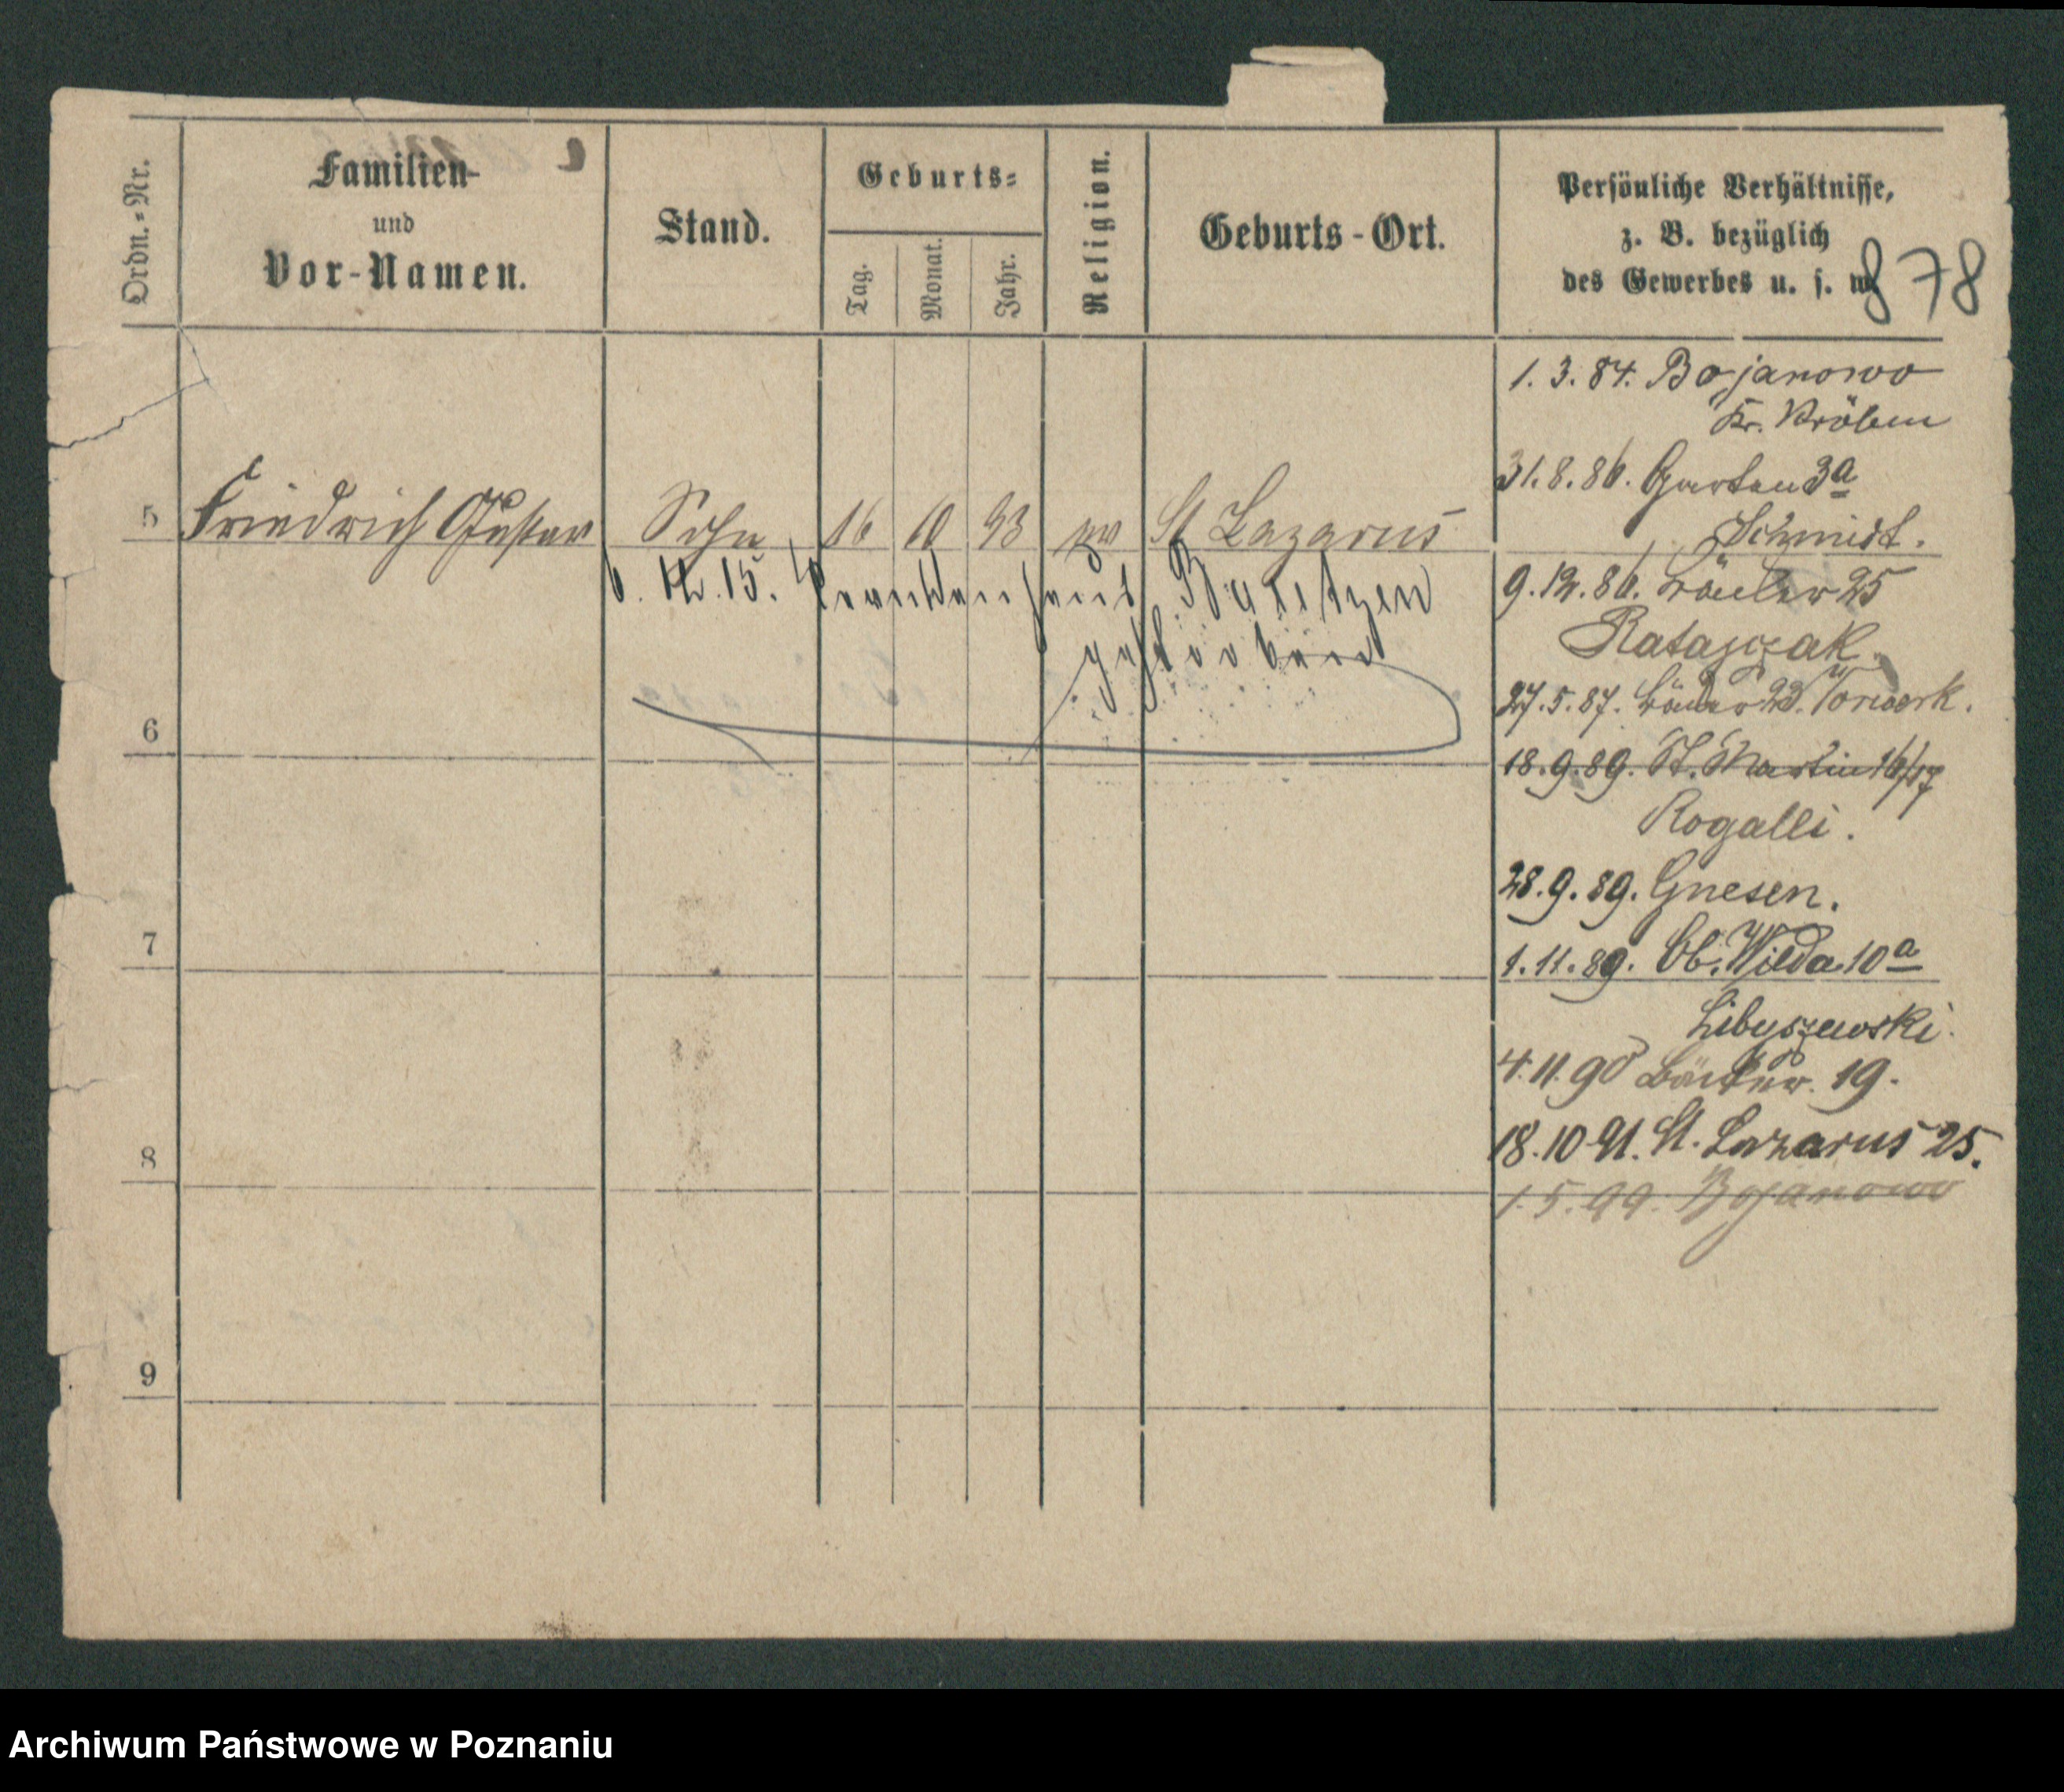 Ordn.=Nr.
Familien-
und
Vor-Namen.
Stand.
Geburts=
Tag.
Monat.
Jahr.
Religion.
Geburts-Ort.
Persönliche Verhältnisse,
z. B. bezüglich
des Gewerbes u. s. w.
878
1. 3. 84. Bojanowo
Kr. Kröben
31. 8. 86. Garten 3a
Schmidt.
5 Friedrich Gustav Sohn 16 10 93 St Lazarus
6. 12. 15. Krankenhaus
gestorben
9. 12. 86. Bäcker 25
Ratajczak.
27. 5. 87. Bäcker 23. Vorwerk.
18. 9. 89. St. Martin 16/17
Rogalli.
28. 9. 89. Gnesen.
1. 11. 89. Ob. Wilda 10a
Libyszewski.
4. 11. 90 Bäcker. 19.
18. 10 91. St. Lazarus 25.
1. 5. 99. Bojanowo
6
7
8
9
Archiwum Państwowe w Poznaniu